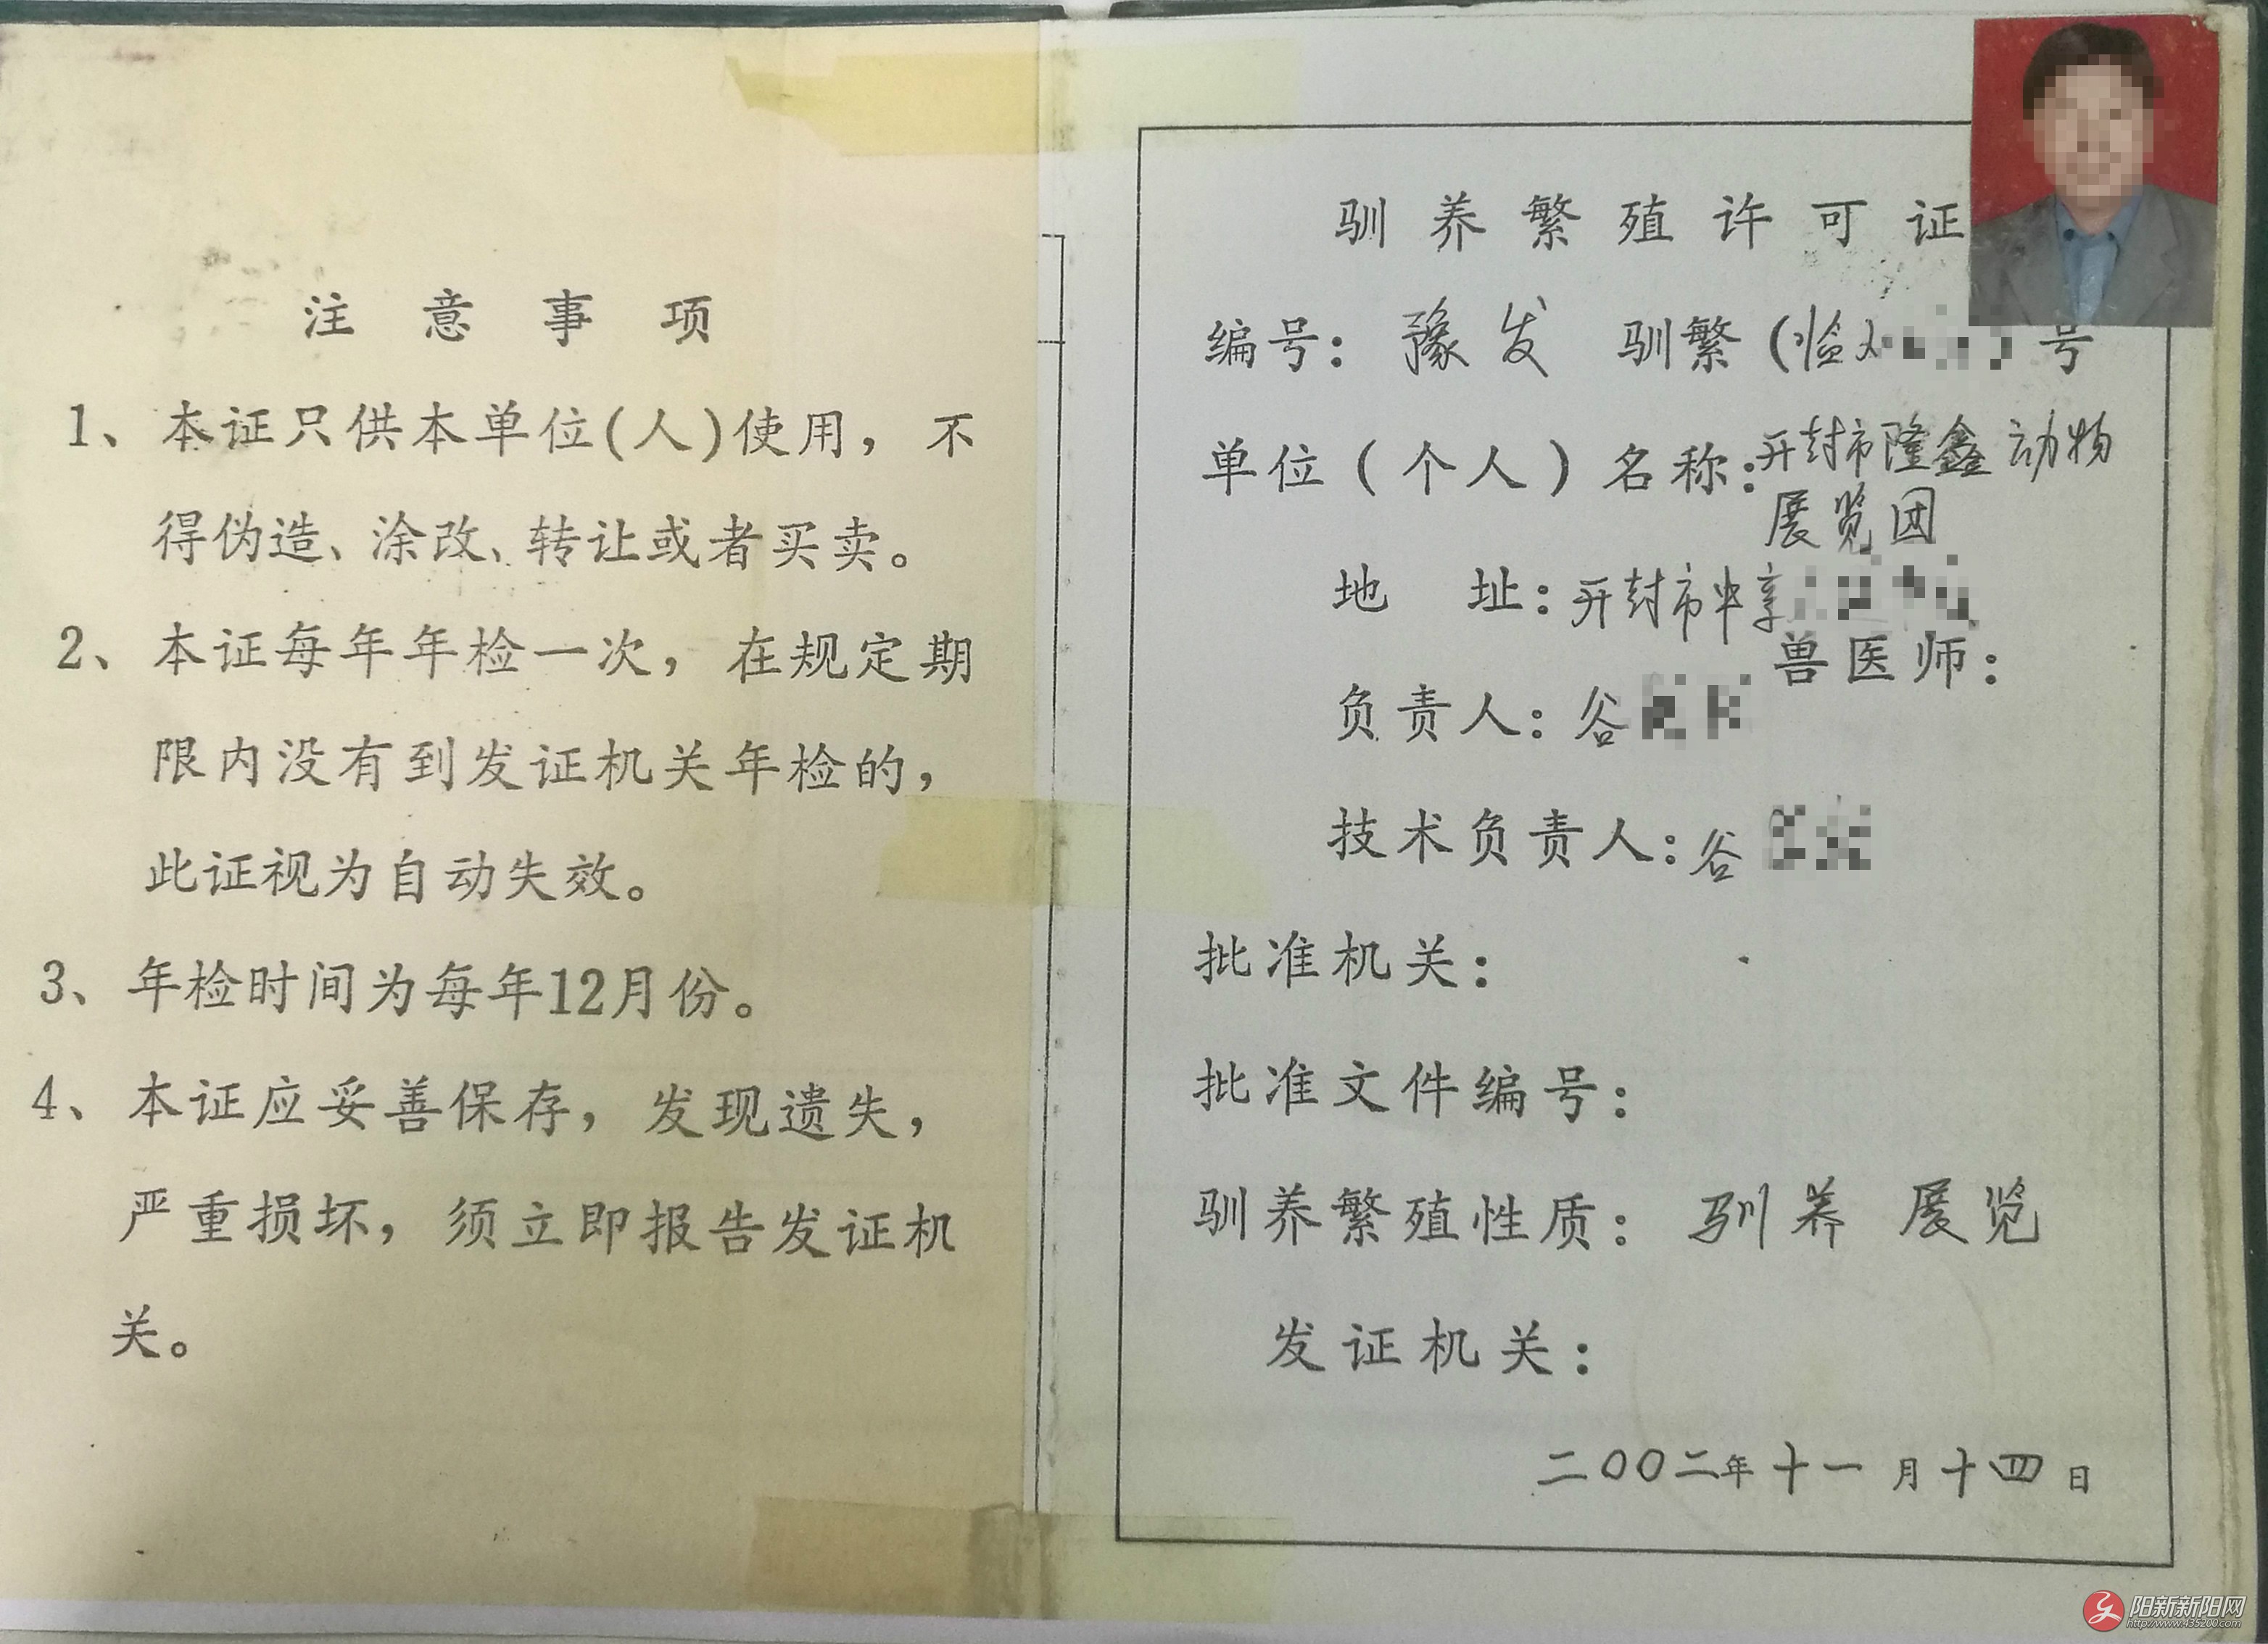 注意事项
1、本证只供本单位(人)使用，不
得伪造、涂改、转让或者买卖。
2、本证每年年检一次，在规定期
限内没有到发证机关年检的，
此证视为自动失效。
3、年检时间为每年12月份。
4、本证应妥善保存，发现遗失，
严重损坏，须立即报告发证机
关。
驯养繁殖许可证
编号：豫发 驯繁(临 号
单位（个人）名称：开封市隆鑫动物
展览团
地 址：开封市
兽医师：
负责人：谷
技术负责人：谷
批准机关：
批准文件编号：
驯养繁殖性质：驯养 展览
发证机关：
二〇〇二年十一月十四日
阳新新阳网
http://www.435200.com